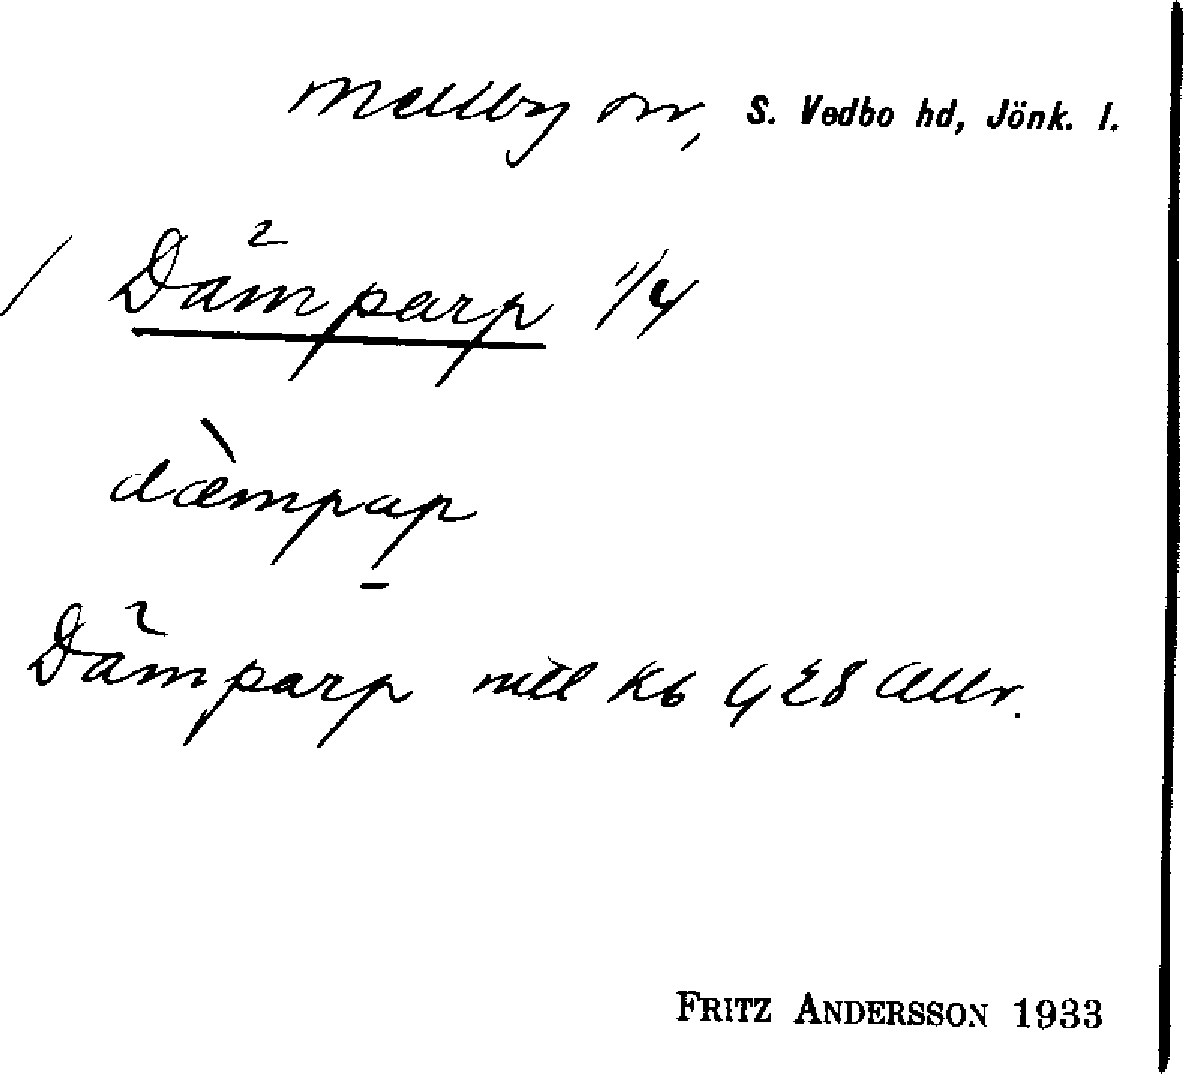 Mellby sn, S. Vedbo hd, Jönk. l.
/ Dämparp 1/4
dæ̀mpap
Dämparp mtl Kb G 28 Allr.
FRITZ ANDERSSON 1933